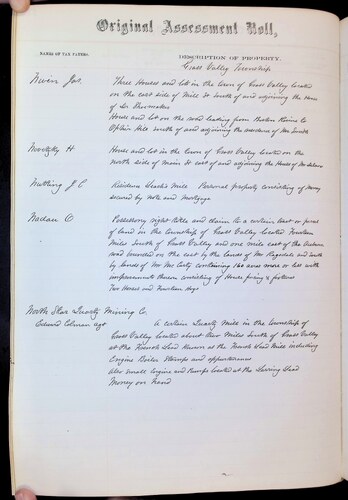 Original Assessment Roll,
NAMES OF TAX PAYERS.
DESCRIPTION OF PROPERTY.
Grass Valley Township
Three Houses and lot in the town of Grass Valley located
on the east side of Mill St south of and adjoining the House
of Shoemaker
House and lot on the road leading from to
Hill South of and adjoining the residence of
H
House and lot in the town of Grass Valley located on the
north side of Main St east of and adjoining the House of
J. C.
Residence Mill Personal property consisting of money
secured by note and mortgage
C
Possessory right title and claim to a certain tract or parcel
of land in the township of Grass Valley located Fourteen
Miles South of Grass Valley and one mile east of the
road bounded on the east by the lands of Mr Ragsdale and South
by lands of Mr containing 160 acres more or less with
improvements thereon consisting of House fencing &
Two Horses and Fourteen Hogs
North Star Quartz Mining Co.
Edward Coleman agt
A certain Quartz Mill in the township of
Grass Valley located about Two Miles South of Grass Valley
at the French Lead Known as the French Lead Mill including
Engine Boiler Stamps and appurtenances
Also small engine and Pumps located at the Lead
Money on hand